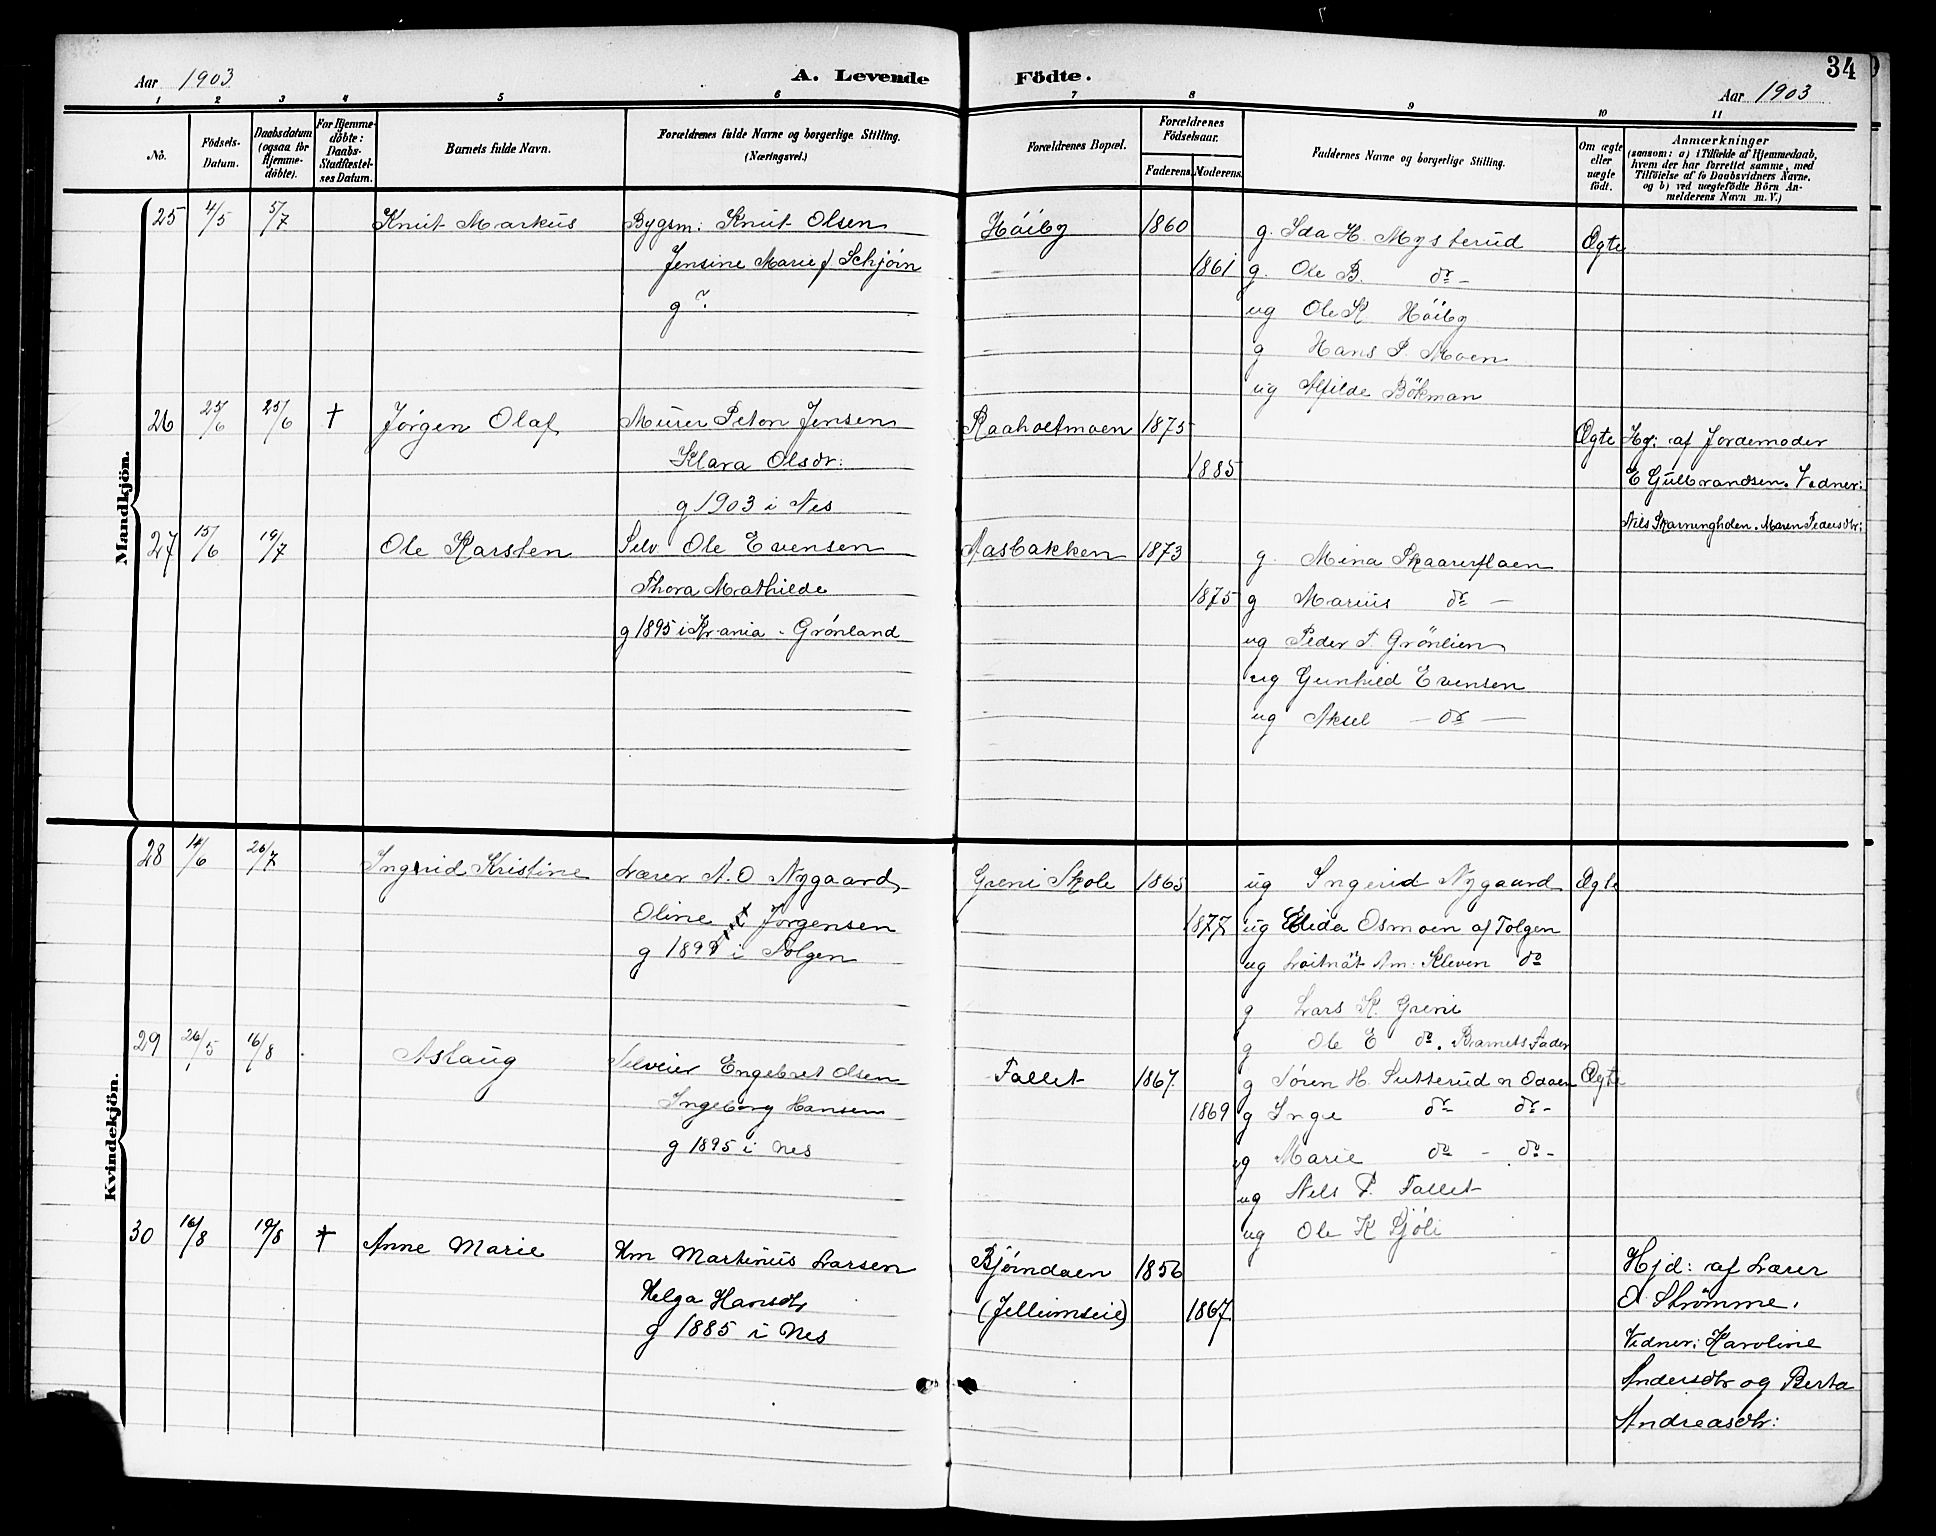 34
Aar 1903 A. Levende Födte. Aar 1903
1 2 3 4 5 6 7 8 9 10 11
No. Födsels-Datum. Daabsdatum (ogsaa for Hjemmedöbte). For Hjemmedöbte: Daabs-Stadfæstelses Datum. Barnets fulde Navn. Forældrenes fulde Navne og borgerlige Stilling. (Næringsvei.) Forældrenes Bopæl. Forældrenes Födselsaar. Faderens Moderens. Faddernes Navne og borgerlige Stilling. Om ægte eller uægte födt. Anmærkninger (saasom: a) i Tilfælde af Hjemmedaab, hvem der har forrettet samme, med Tilföielse af to Daabsvidners Navne, og b) ved uægtefödte Börn Anmelderens Navn m. V.)
Mandkjön.
25 4/5 5/7 Knut Markus Bygsm: Knut Olsen Höiby 1860 g. Ida H. Mysterud Ægte
Jensine Marie f Schjöin 1861 g. Ole B. do -
g ?. ug Ole K Höiby
g Hans P. Moen
ug Alfilde Bökman
26 25/6 25/6 † Jörgen Olaf Murer Peton Jensen Raaholtmoen 1875 Ægte Hg: af Jordemoder
Klara Olsdr: 1885 E Gulbrandsen. Vidner:
g 1903 i Nes Nils Skarninghden. Maren Pedersdtr:
27 15/6 19/7 Ole Karsten Selv. Ole Evensen Aasbakken 1873 g. Mina Skaarerflaen
Thora Mathilde 1875 g Marius do -
g 1895 i Kr.ania - Grönland ug Peder P. Grönlien
ug Gunhild Evensen
ug Aksel - do -
Kvindekjön.
28 14/6 26/7 Ingrid Kristine Lærer A. O Nygaard, Greni Skole 1865 ug Ingerid Nygaard Ægte
Oline Jörgensen 1877 ug Elida Osmoen af Tolgen
g 1899 i Tolgen ug Loitnät Am. Kleven do
g Lars K. Greni
g Ole E do. Barnets Fader
29 26/5 16/8 Aslaug Selveier Engebret Olsen Fallet 1867 g Sören H. Sutterud n Odaen Ægte
Ingeborg Hansen 1869 g Inga do do -
g 1895 i Nes ug Marie do - do -
ug Nels P. Fallet
ug Ole K Sjöli
30 16/8 19/8 † Anne Marie Hm Martinus Larsen Bjørndaen 1856 Hjd: af Lærer
Helga Hansdtr (Jellumseie) 1867 O Strömme.
g 1885 i Nes Vidner: Karoline
Andersdtr og Berta
Andreasdtr: